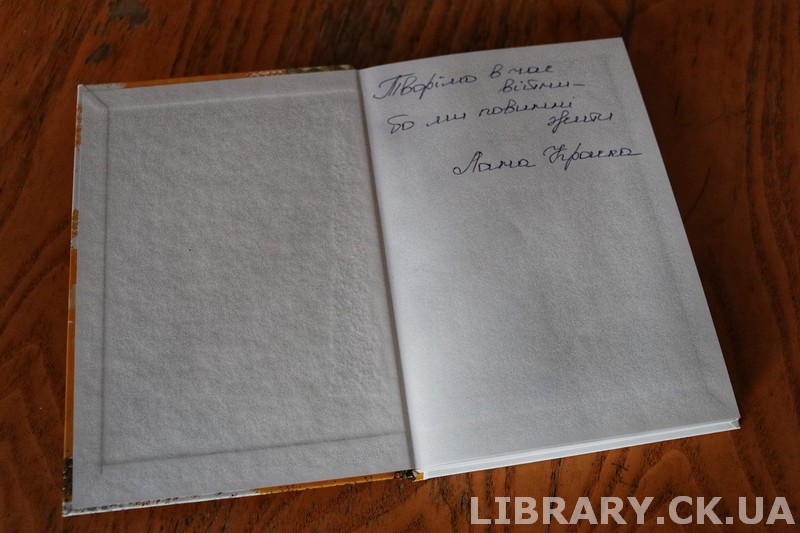 Творімо в час
війни –
бо ми повинні
жити
Лана Краска
LIBRARY.CK.UA